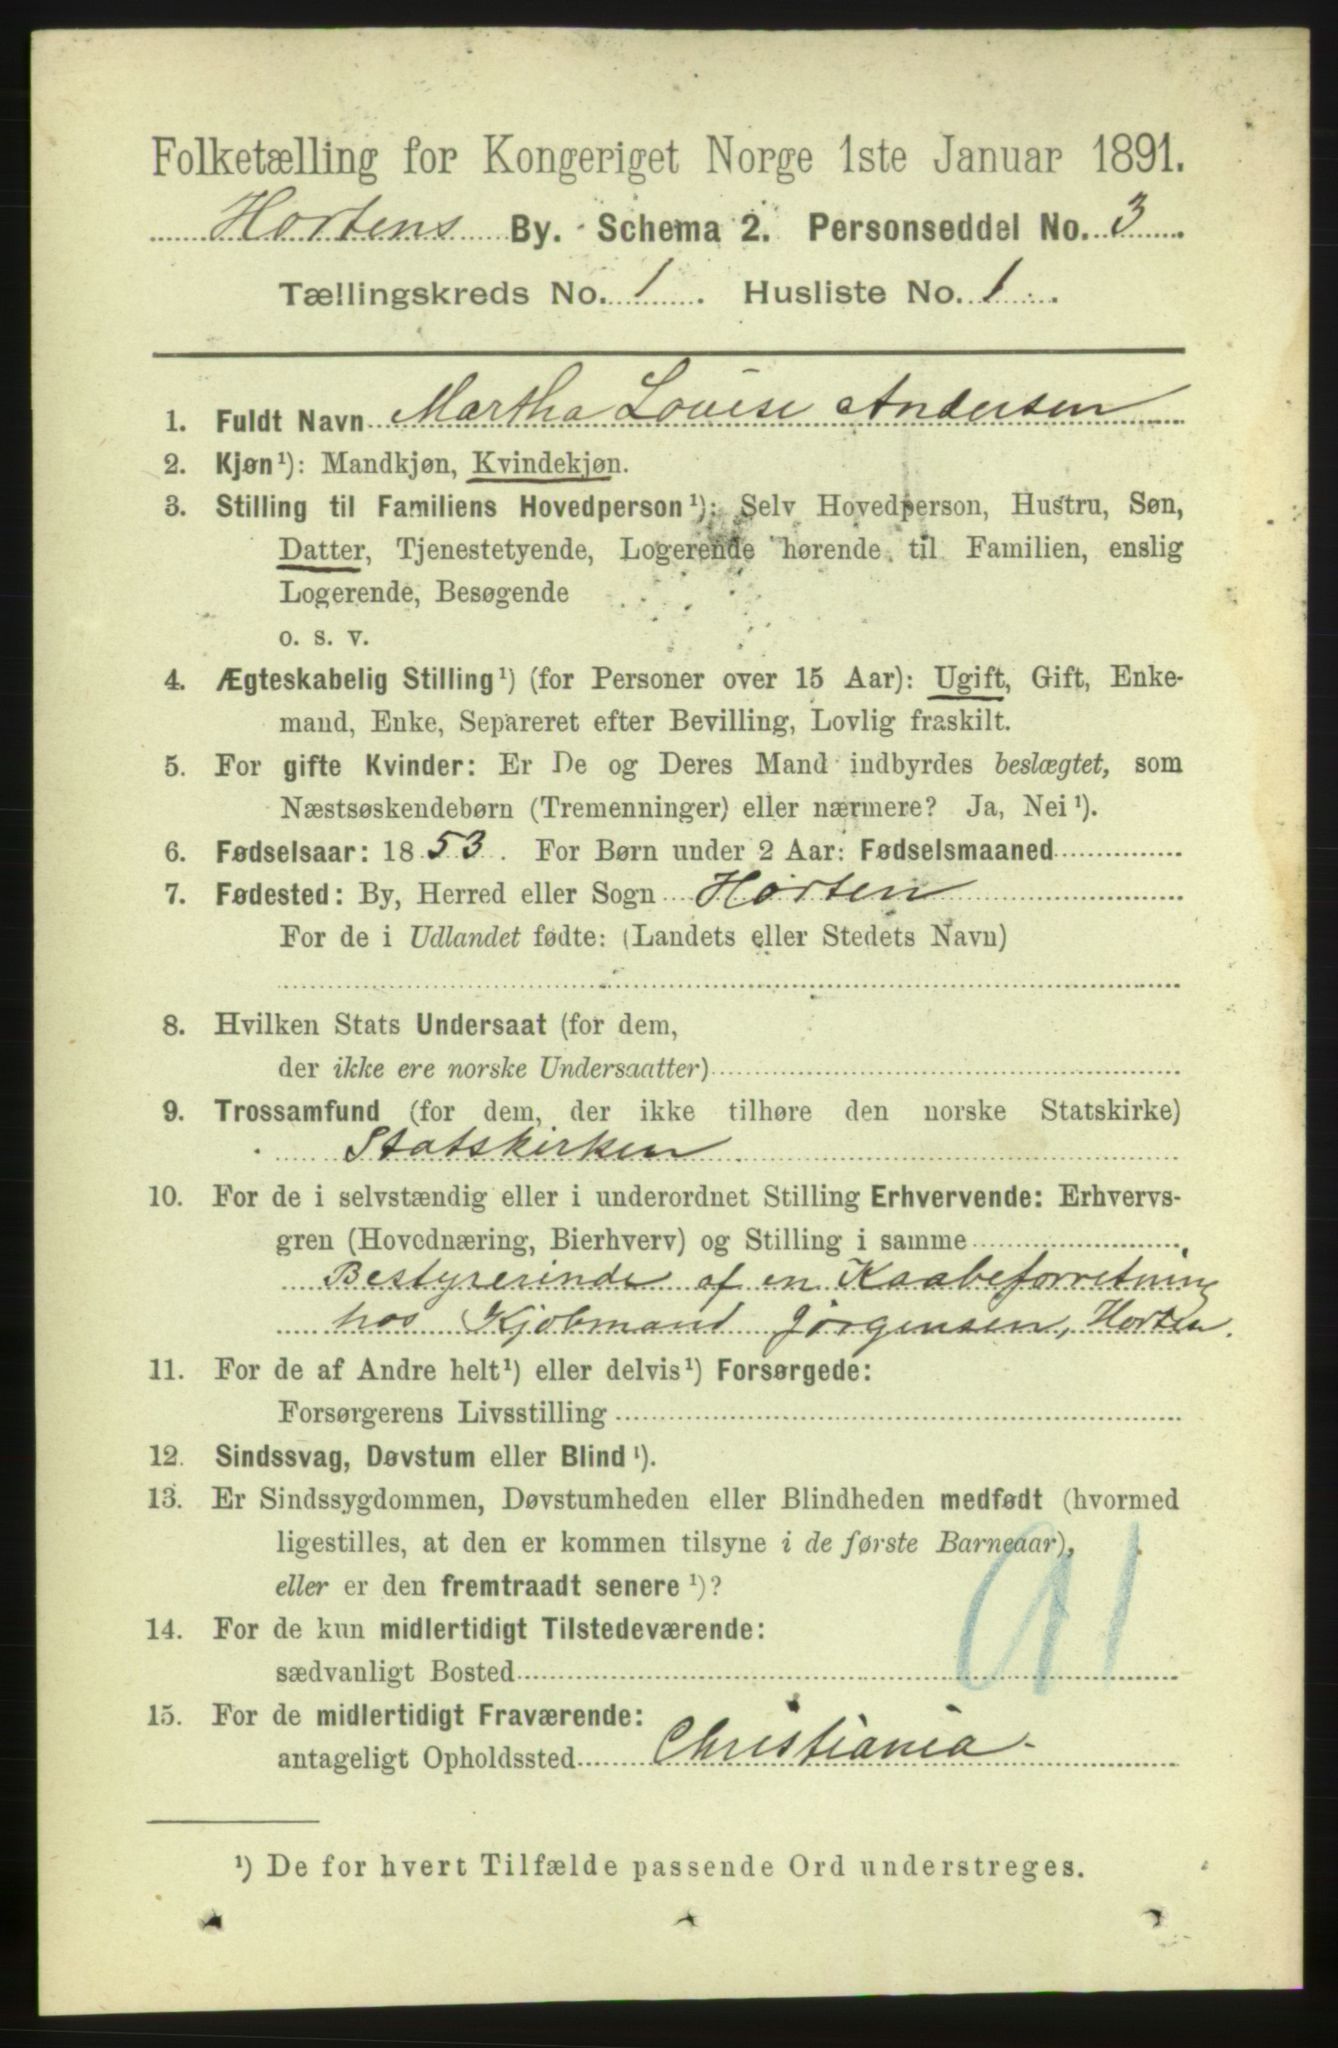 Folketælling for Kongeriget Norge 1ste Januar 1891.
Hortens By. Schema 2. Personseddel No. 3
Tællingskreds No. 1. Husliste No. 1.
1. Fuldt Navn Martha Louise Andersen
2. Kjøn¹): Mandkjøn, Kvindekjøn.
3. Stilling til Familiens Hovedperson¹): Selv Hovedperson, Hustru, Søn,
Datter, Tjenestetyende, Logerende hørende til Familien, enslig
Logerende, Besøgende
o. s. v.
4. Ægteskabelig Stilling¹) (for Personer over 15 Aar): Ugift, Gift, Enke-
mand, Enke, Separeret efter Bevilling, Lovlig fraskilt.
5. For gifte Kvinder: Er De og Deres Mand indbyrdes beslægtet, som
Næstsøskendebørn (Tremenninger) eller nærmere? Ja, Nei¹).
6. Fødselsaar: 1853. For Børn under 2 Aar: Fødselsmaaned
7. Fødested: By, Herred eller Sogn Horten
For de i Udlandet fødte: (Landets eller Stedets Navn)
8. Hvilken Stats Undersaat (for dem,
der ikke ere norske Undersaatter)
9. Trossamfund (for dem, der ikke tilhøre den norske Statskirke)
Statskirken
10. For de i selvstændig eller i underordnet Stilling Erhvervende: Erhvervs-
gren (Hovednæring, Bierhverv) og Stilling i samme
Bestyrerinde af en Kaabeforretning
hos Kjøbmand Jørgensen, Horten.
11. For de af Andre helt¹) eller delvis¹) Forsørgede:
Forsørgerens Livsstilling
12. Sindssvag, Døvstum eller Blind¹).
13. Er Sindssygdommen, Døvstumheden eller Blindheden medfødt (hvormed
ligestilles, at den er kommen tilsyne i de første Barneaar),
eller er den fremtraadt senere¹)?
91
14. For de kun midlertidigt Tilstedeværende:
sædvanligt Bosted
15. For de midlertidigt Fraværende:
antageligt Opholdssted Christiania
¹) De for hvert Tilfælde passende Ord understreges.